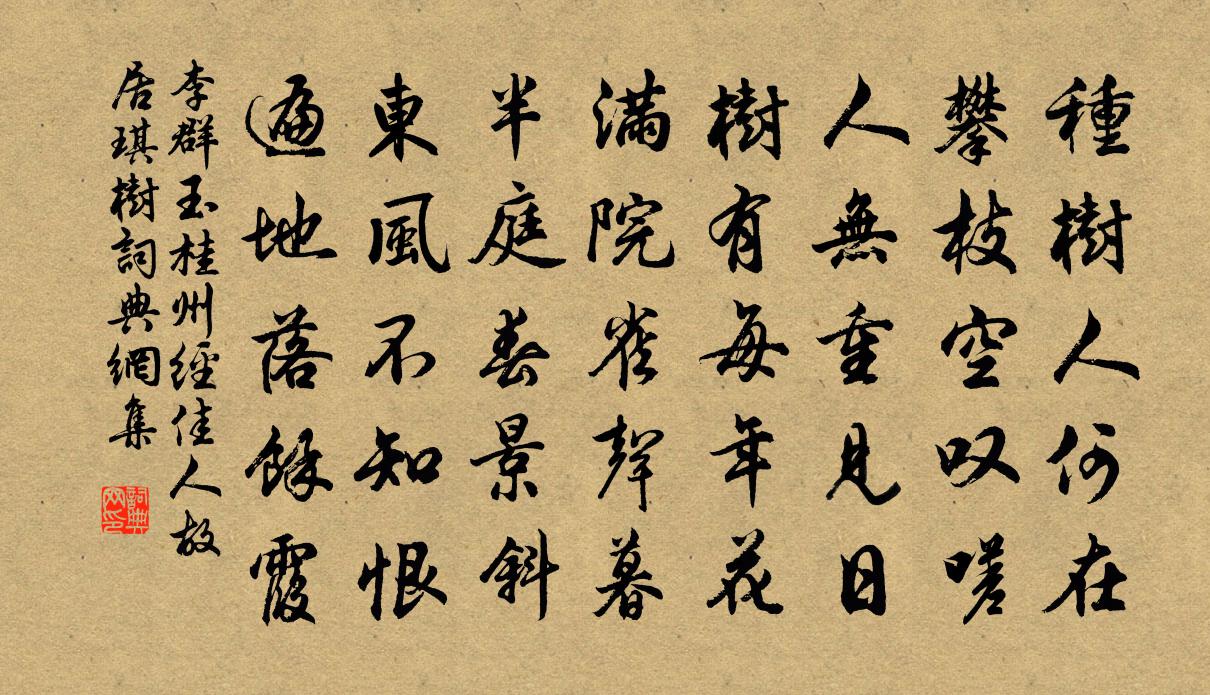 種樹人何在
攀枝空叹嗟
人無重見日
樹有每年花
滿院雀聲暮
半庭春景斜
東風不知恨
遍地落餘霞
李群玉桂州經佳人故
居琪樹詞典網集
詞典
网印